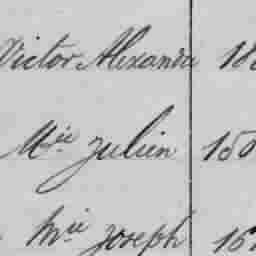 Victor Alexandre 18
Mie Julien 150
Mie Joseph 16